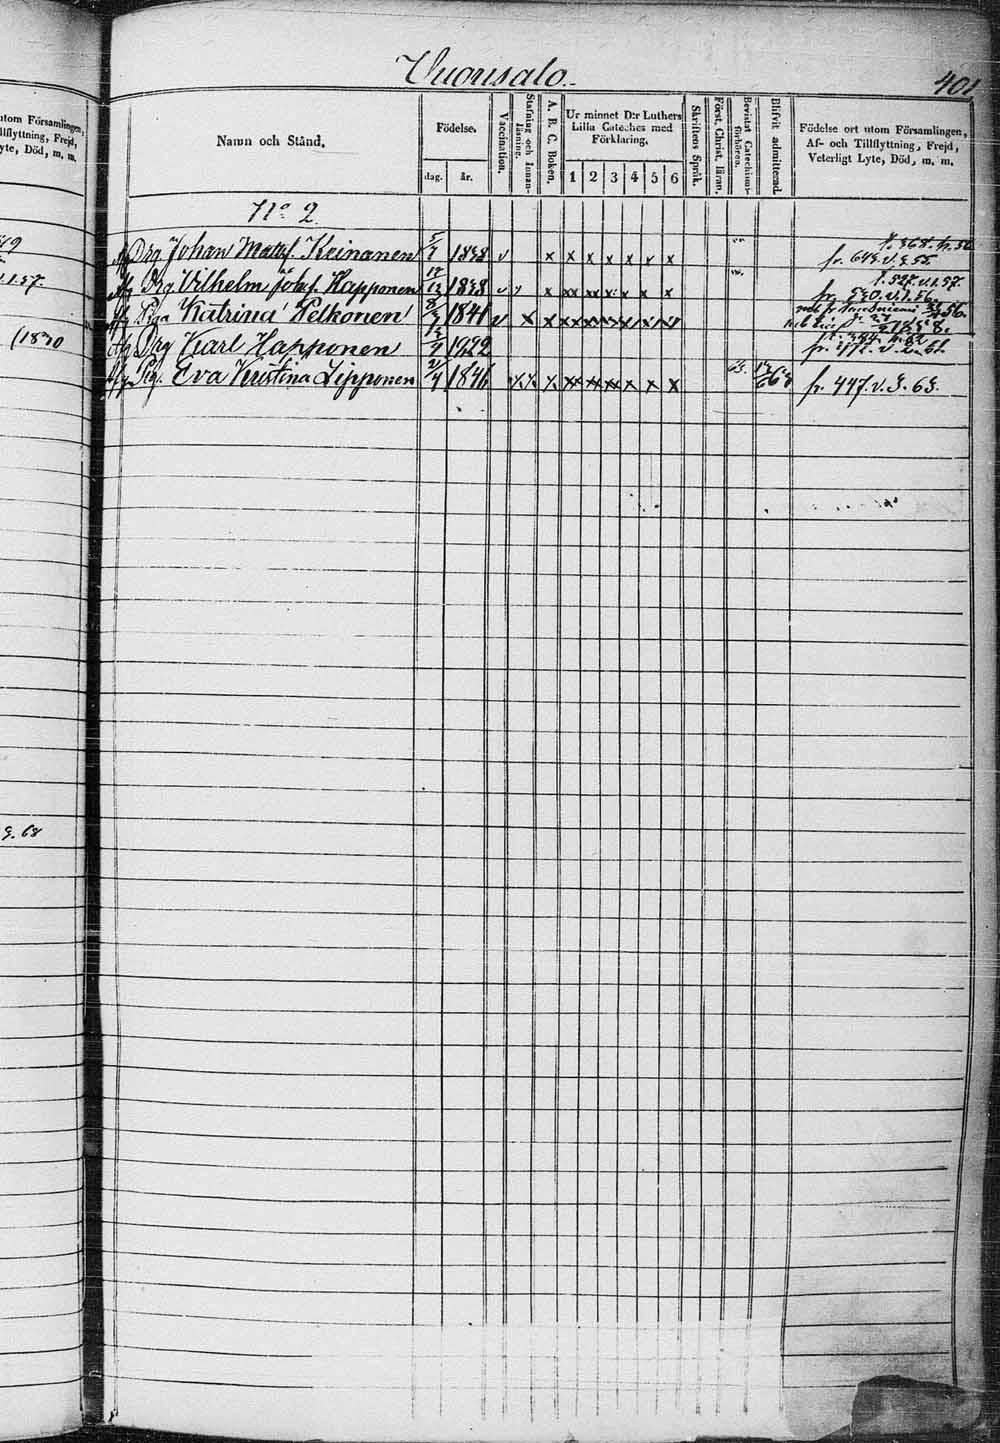 Vuorisalo.
401
utom Församlingen,
Tillflyttning, Frejd,
yte, Död, m. m.
Namn och Stånd.
Födelse.
dag. år.
Vaccination.
Stafning och Innan-
läsning.
A. B. C. Boken.
Ur minnet D:r Luthers
Lilla Cateches med
Förklaring.
1 2 3 4 5 6
Skriftens Språk.
Först. Christ. läran.
Bevistat Catechismi-
förhören.
Blifvit admitterad.
Födelse ort utom Församlingen,
Af- och Tillflyttning, Frejd,
Veterligt Lyte, Död, m. m.
No 2
Drg Johan Matsf. Keinanen 1838 v x x x x x v x fr. 643. v. 3. 55.
Drg Vilhelm Johsf. Happonen 1838 v x xx x x x x x fr. 530. v. 1. 56.
Piga Katrina Pelkonen 1841 v
Drg Karl Happonen 1822
Pig. Eva Kristina Lipponen 2/4 1846 63. fr. 447. v. 3. 63.
1.57.
(1830
3. 68